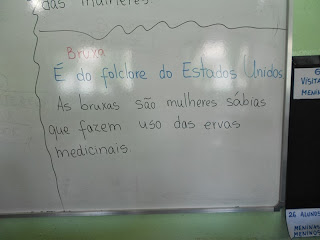 das mulheres.
Bruxa
É do folclore do Estados Unidos
As bruxas são mulheres sábias
que fazem uso das ervas
medicinais.
VISITA
MENIN
26 ALUNOS
MENINAS
MENINOS